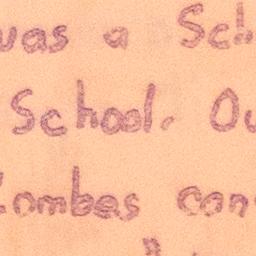 was a Sch
School. Ou
Combes con